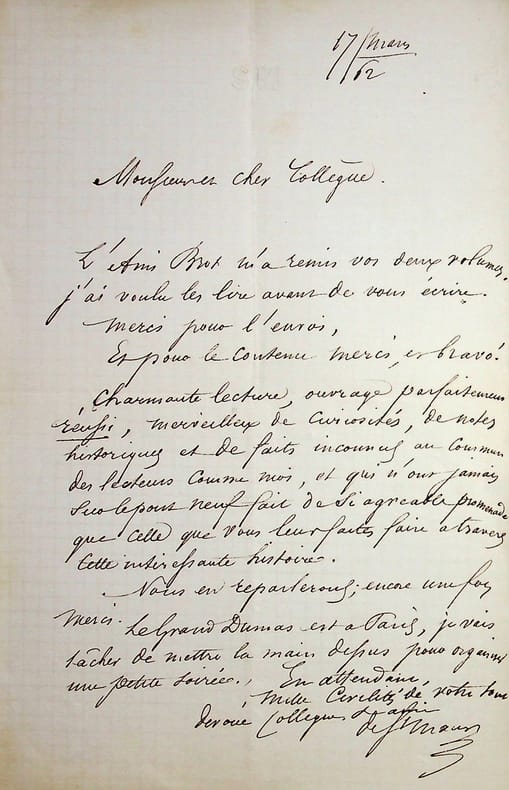 17/mars
/62
Monsieur et cher Collègue.
L'Ami Brot m'a remis vos deux volumes.
j'ai voulu les lire avant de vous écrire.
Merci pour l'envoi,
Et pour le contenu merci, et bravo!
Charmante lecture, ouvrage parfaitement
réussi, merveilleux de curiosités, de notes
historiques et de faits inconnus au commun
des lecteurs comme moi, et qui n'ont jamais
sur le pont neuf fait de si agréable promenade
que celle que vous leur faites faire à travers
cette intéressante histoire.
Nous en reparlerons; encore une fois
merci.
Le Grand Dumas est à Paris, je vais
tâcher de mettre la main dessus pour organiser
une petite soirée. En attendant,
Mille Civilités de votre tout
dévoué Collègue
de St Maur